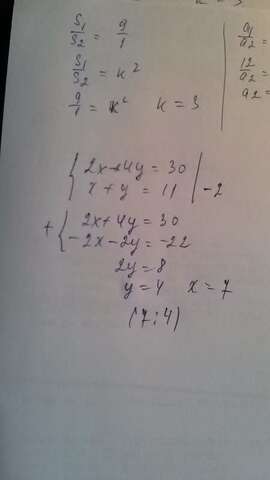 S₁/S₂ = 9/1
S₁/S₂ = k²
9/1 = k² k = 3
a₁/a₂ =
12/a₂ =
a₂ =
{ 2x+4y = 30
x + y = 11 | -2
+ { 2x+4y = 30
-2x-2y = -22
2y = 8
y = 4 x = 7
(7;4)